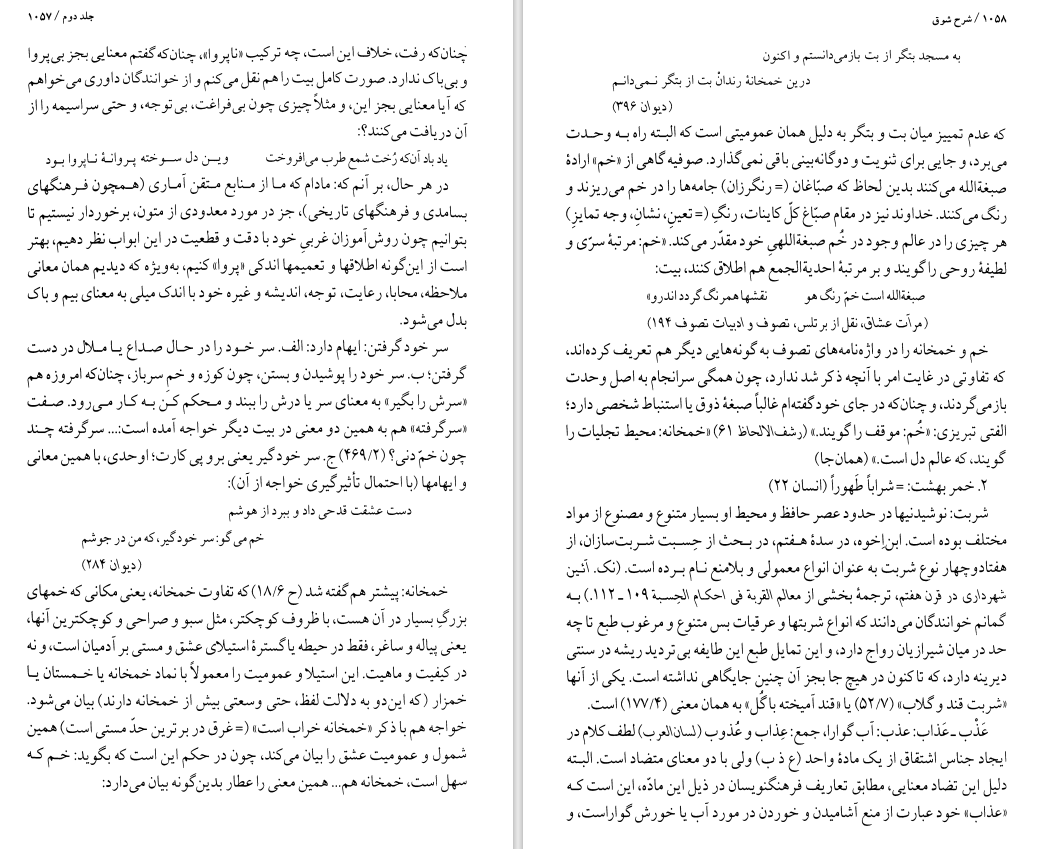 جلد دوم / ۱۰۵۷
چنان‌که رفت، خلاف این است، چه ترکیب «ناپروا»، چنان‌که گفتم معنایی بجز بی‌پروا
و بی‌باک ندارد. صورت کامل بیت را هم نقل می‌کنم و از خوانندگان داوری می‌خواهم
که آیا معنایی بجز این، و مثلاً چیزی چون بی‌فراغت، بی‌توجه، و حتی سراسیمه را از
آن دریافت می‌کنند؟:
یاد باد آن‌که رُخت شمع طرب می‌افروخت ویـن دل سـوخته پـروانهٔ نـاپروا بـود
در هر حال، بر آنم که: مادام که مـا از مـنابع مـتقن آمـاری (هـمچون فـرهنگهای
بسامدی و فرهنگهای تاریخی)، جز در مورد معدودی از متون، برخوردار نیستیم تا
بتوانیم چون روش‌آموزان غربیِ خود با دقت و قطعیت در این ابواب نظر دهیم، بهتر
است از این‌گونه اطلاقها و تعمیمها اندکی «پروا» کنیم، به‌ویژه که دیدیم همان معانی
ملاحظه، محابا، رعایت، توجه، اندیشه و غیره خود با اندک میلی به معنای بیم و باک
بدل می‌شود.
سر خود گرفتن: ایهام دارد: الف. سر خـود را در حـال صـداع یـا مـلال در دست
گرفتن؛ ب. سر خود را پوشیدن و بستن، چون کوزه و خم سرباز، چنان‌که امروزه هم
«سرش را بگیر» به معنای سر یا درش را ببند و مـحکم کـن بـه کـار مـی‌رود. صـفت
«سرگرفته» هم به همین دو معنی در بیت دیگر خواجه آمده است:... سرگرفته چـند
چون خمّ دنی؟ (۴۶۹/۲) ج. سر خود گیر یعنی برو پی کارت؛ اوحدی، با همین معانی
و ایهامها (با احتمال تأثیرگیری خواجه از آن):
دست عشقت قدحی داد و ببرد از هوشم
خم می‌گو: سر خود گیر، که من در جوشم
(دیوان ۲۸۴)
خمخانه: پیشتر هم گفته شد (ح ۱۸/۶) که تفاوت خمخانه، یعنی مکانی که خمهای
بزرگِ بسیار در آن هست، با ظروف کوچکتر، مثل سبو و صراحی و کوچکترین آنها،
یعنی پیاله و ساغر، فقط در حیطه یا گسترهٔ استیلای عشق و مستی بر آدمیان است، و نه
در کیفیت و ماهیت. این استیلا و عمومیت را معمولاً با نماد خمخانه یا خـمستان یـا
خمزار (که این‌دو به دلالت لفظ، حتی وسعتی بیش از خمخانه دارند) بیان می‌شود.
خواجه هم با ذکر «خمخانه خراب است» (= غرق در برترین حدّ مستی است) همین
شمول و عمومیت عشق را بیان می‌کند، چون در حکم این است که بگوید: خم کـه
سهل است، خمخانه هم... همین معنی را عطار بدین‌گونه بیان می‌دارد:
۱۰۵۸ / شرح شوق
به مسجد بتگر از بت بازمی‌دانستم و اکنون
درین خمخانهٔ رندانْ بت از بتگر نـمی‌دانـم
(دیوان ۳۹۶)
که عدم تمییز میان بت و بتگر به دلیل همان عمومیتی است که البته راه بـه وحـدت
می‌برد، و جایی برای ثنویت و دوگانه‌بینی باقی نمی‌گذارد. صوفیه گاهی از «خم» ارادهٔ
صبغةالله می‌کنند بدین لحاظ که صبّاغان (= رنگرزان) جامه‌ها را در خم می‌ریزند و
رنگ می‌کنند. خداوند نیز در مقام صبّاغ کلّ کاینات، رنگِ (= تعین، نشان، وجه تمایزِ)
هر چیزی را در عالم وجود در خُم صبغةاللهیِ خود مقدّر می‌کند. «خم: مرتبهٔ سرّی و
لطیفهٔ روحی را گویند و بر مرتبهٔ احدیةالجمع هم اطلاق کنند، بیت:
صبغةالله است خمّ رنگ هو نقشها همرنگ گردد اندرو»
(مرآت عشاق، نقل از برتلس، تصوف و ادبیات تصوف ۱۹۴)
خم و خمخانه را در واژه‌نامه‌های تصوف به گونه‌هایی دیگر هم تعریف کرده‌اند،
که تفاوتی در غایت امر با آنچه ذکر شد ندارد، چون همگی سرانجام به اصل وحدت
بازمی‌گردند، و چنان‌که در جای خود گفته‌ام غالباً صبغهٔ ذوق یا استنباط شخصی دارد؛
الفتی تبریزی: «خُم: موقف را گویند.» (رشف‌الالحاظ ۶۱) «خمخانه: محیط تجلیات را
گویند، که عالم دل است.» (همان‌جا)
۲. خمر بهشت: = شراباً طَهوراً (انسان ۲۲)
شربت: نوشیدنیها در حدود عصر حافظ و محیط او بسیار متنوع و مصنوع از مواد
مختلف بوده است. ابن‌اِخوه، در سدهٔ هـفتم، در بـحث از حِـسبت شـربت‌سازان، از
هفتادوچهار نوع شربت به عنوان انواع معمولی و بلامنع نـام بـرده است. (نک. آئین
شهرداری در قرن هفتم، ترجمهٔ بخشی از معالم القربة فی احکام الحِسبة ۱۰۹ ـ ۱۱۲.) بـه
گمانم خوانندگان می‌دانند که انواع شربتها و عرقیات بس متنوع و مرغوب طبع تا چه
حد در میان شیرازیان رواج دارد، و این تمایل طبع این طایفه بی‌تردید ریشه در سنتی
دیرینه دارد، که تاکنون در هیچ جا بجز آن چنین جایگاهی نداشته است. یکی از آنها
«شربت قند و گلاب» (۵۲/۷) یا «قند آمیخته با گُل» به همان معنی (۱۷۷/۴) است.
عَذْب ـ عَذاب: عذب: آب گوارا، جمع: عِذاب و عُذوب (لسان‌العرب) لطف کلام در
ایجاد جناس اشتقاق از یک مادهٔ واحد (ع ذ ب) ولی با دو معنای متضاد است. البـته
دلیل این تضاد معنایی، مطابق تعاریف فرهنگنویسان در ذیل این مادّه، این است کـه
«عذاب» خود عبارت از منع آشامیدن و خوردن در مورد آب یا خورش گواراست، و